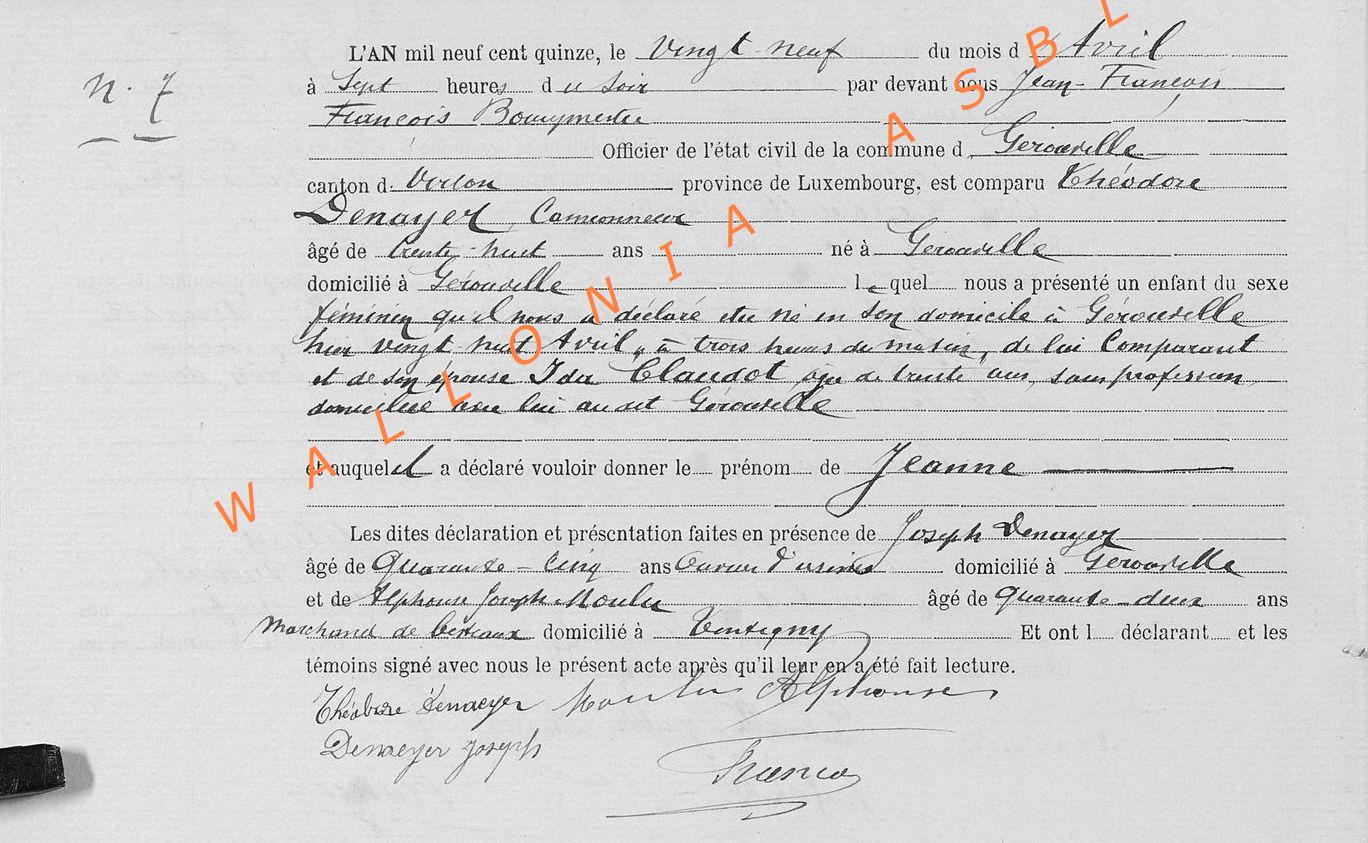 N. 7
L'AN mil neuf cent quinze, le Vingt-neuf du mois d'Avril
à Sept heures du soir par devant nous Jean-François
François Officier de l'état civil de la commune d Gérouville
canton d. Virton province de Luxembourg, est comparu Théodore
Denayer, Camionneur
âgé de trente-huit ans né à Gérouville
domicilié à Gérouville lequel nous a présenté un enfant du sexe
féminin qu'il nous a déclaré être né en son domicile à Gérouville
hier vingt huit Avril, à trois heures du matin, de lui Comparant
et de son épouse Ida Claudot âgée de trente ans, sans profession
domiciliée avec lui au dit Gérouville
et auquel il a déclaré vouloir donner le prénom de Jeanne
Les dites déclaration et présentation faites en présence de Joseph Denayer
âgé de Quarante-Cinq ans Ouvrier d'usines domicilié à Gérouville
et de Alphonse Joseph âgé de Quarante-deux ans
Marchand de bestiaux domicilié à Et ont l déclarant et les
témoins signé avec nous le présent acte après qu'il leur en a été fait lecture.
Théodore Denaeyer Alphonse
Denaeyer Joseph
WALLONIA ASBL